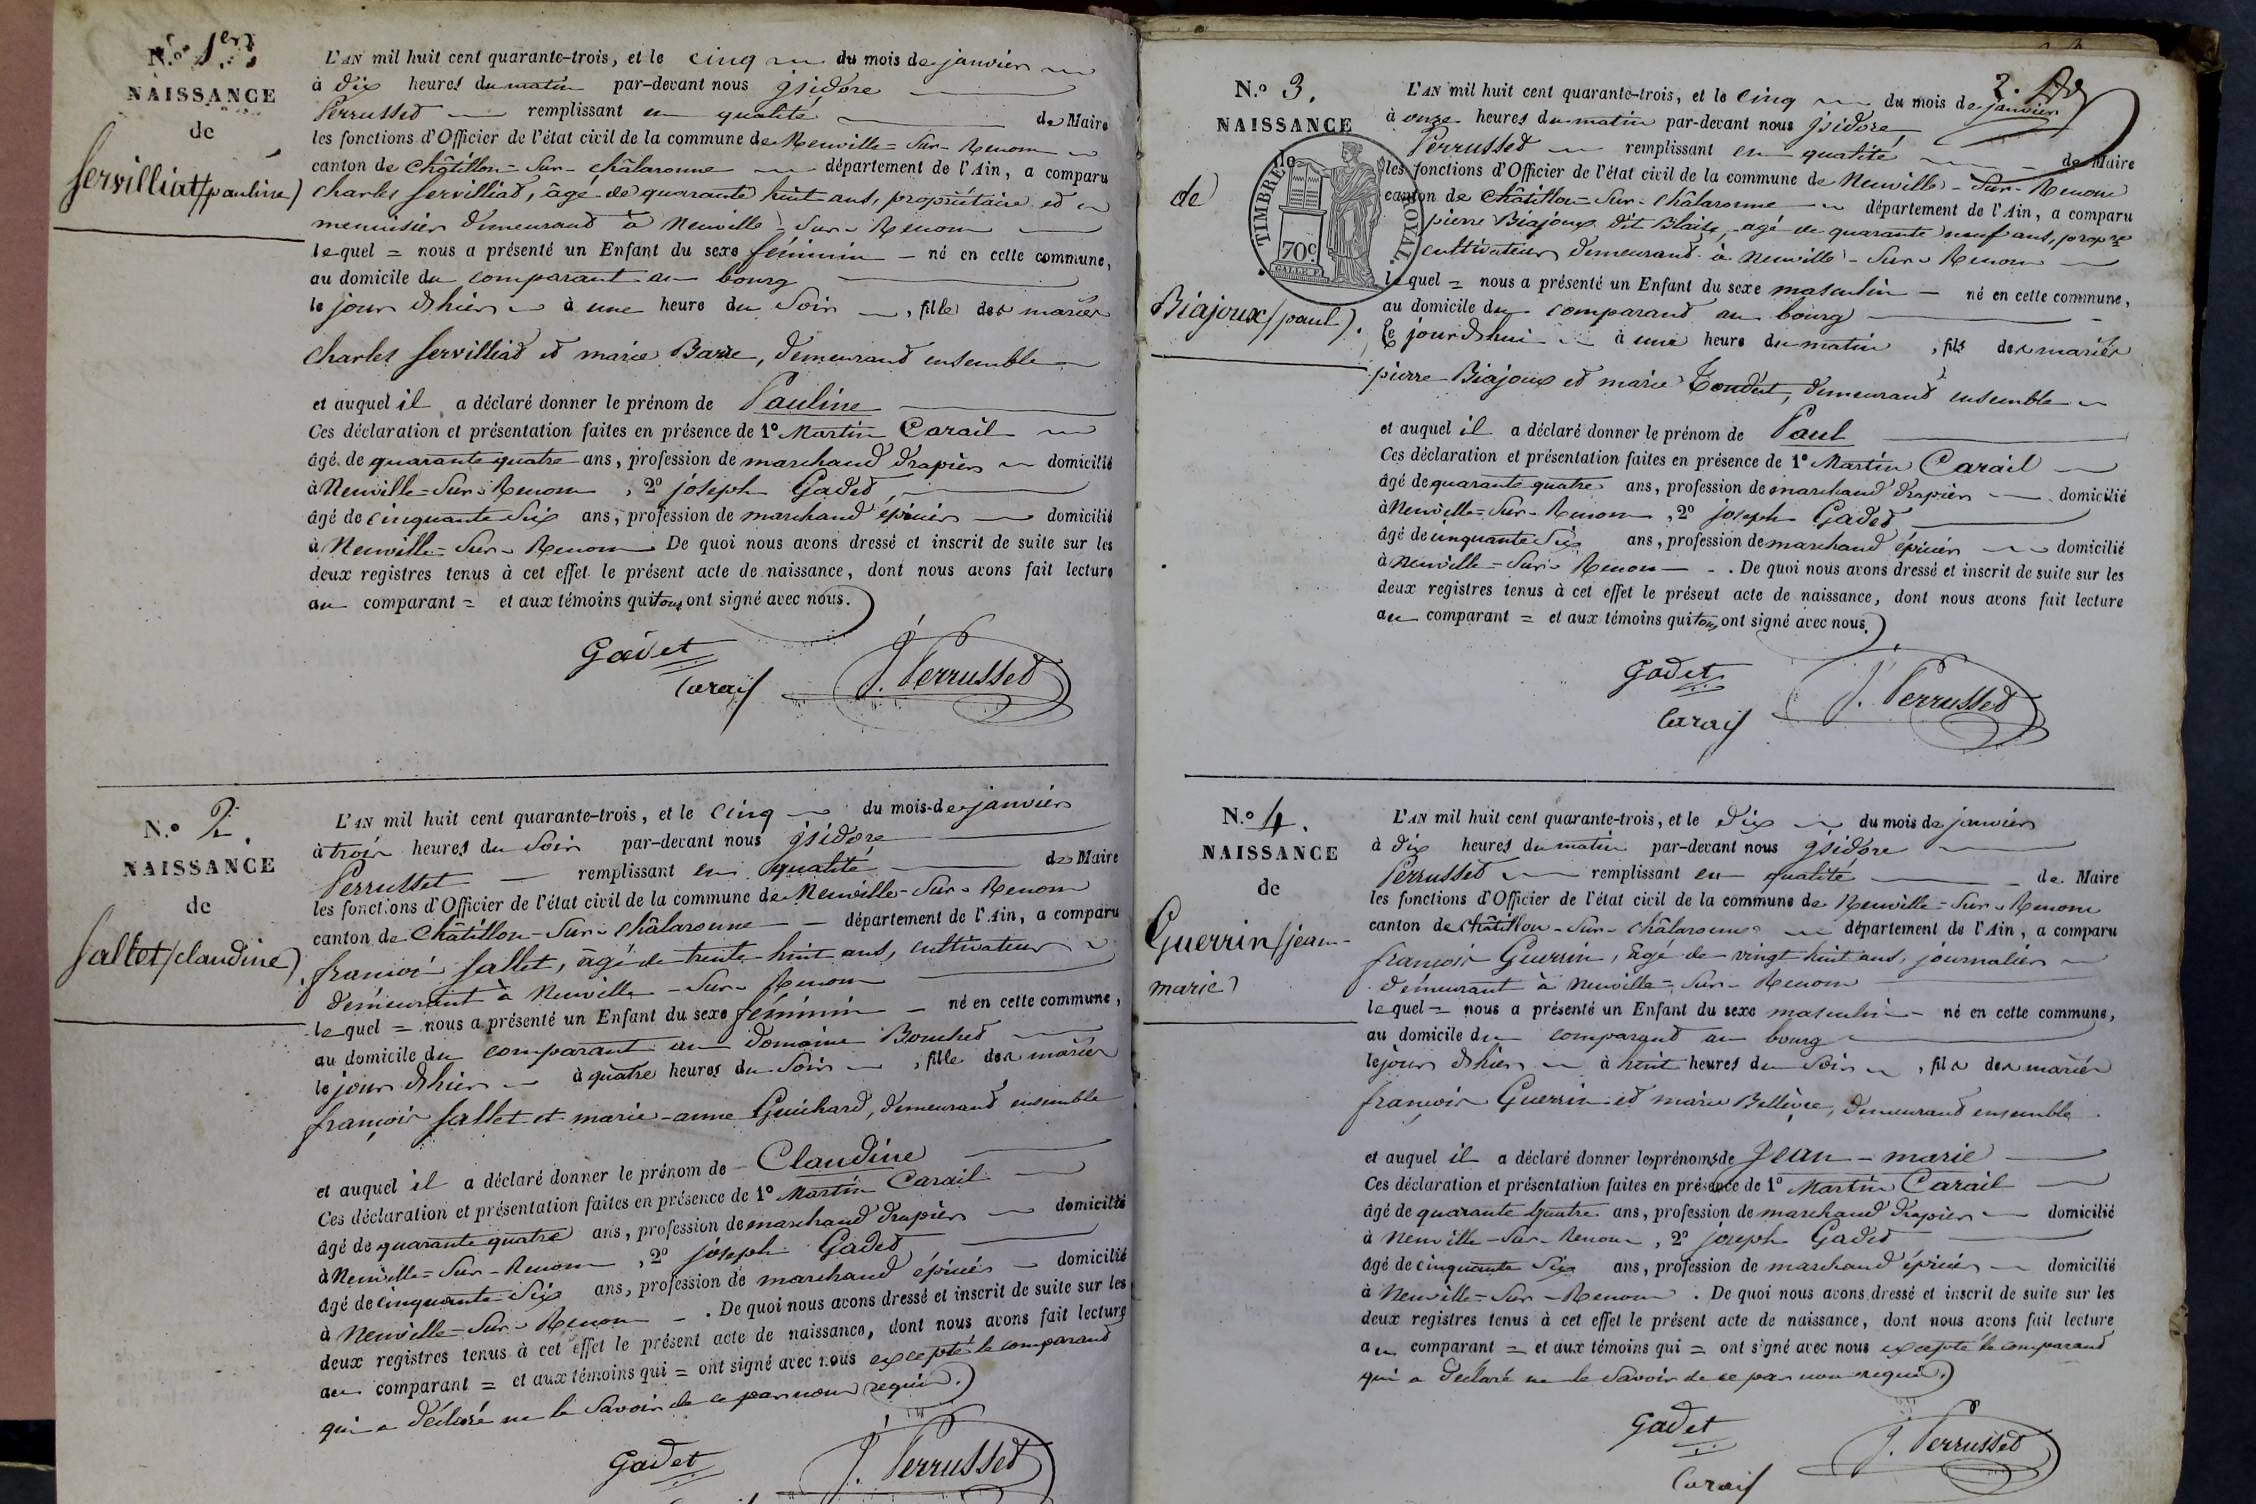 N.º 1er
NAISSANCE
de
Servilliat (pauline)
L'AN mil huit cent quarante-trois, et le cinq du mois de janvier
à dix heures du matin par-devant nous jsidore
Perrusset remplissant en qualité de Maire
les fonctions d'Officier de l'état civil de la commune de Neuville=Sur-Renom
canton de Châtillon=Sur-châlaronne département de l'Ain, a comparu
Charles Servilliat, âgé de quarante huit ans, propriétaire et
menuisier demeurant à Neuville=Sur-Renom
lequel = nous a présenté un Enfant du sexe féminin né en cette commune,
au domicile du comparant au bourg
le jour d'hier à une heure du Soir, fille des mariés
Charles Servilliat et marie Barre, demeurant ensemble
et auquel il a déclaré donner le prénom de Pauline
Ces déclaration et présentation faites en présence de 1º Martin Carail
âgé de quarante quatre ans, profession de marchand drapier domicilié
à Neuville=Sur-Renom, 2º joseph Gadet,
âgé de cinquante Six ans, profession de marchand épicier domicilié
à Neuville=Sur-Renom De quoi nous avons dressé et inscrit de suite sur les
deux registres tenus à cet effet le présent acte de naissance, dont nous avons fait lecture
au comparant = et aux témoins qui tous ont signé avec nous.
Gadet
Carail
J. Perrusset
N.º 2.
NAISSANCE
de
Sallet (claudine)
L'AN mil huit cent quarante-trois, et le cinq du mois de janvier
à trois heures du Soir par-devant nous jsidore
Perrusset remplissant en qualité de Maire
les fonctions d'Officier de l'état civil de la commune de Neuville-Sur-Renom
canton de Châtillon-Sur-châlaronne département de l'Ain, a comparu
françois Sallet, âgé de trente huit ans, cultivateur
demeurant à Neuville-Sur-Renom
lequel = nous a présenté un Enfant du sexe féminin né en cette commune,
au domicile du comparant au domaine Bouchet
le jour d'hier à quatre heures du Soir, fille des mariés
françois Sallet et marie-anne Guichard, demeurant ensemble
et auquel il a déclaré donner le prénom de Claudine
Ces déclaration et présentation faites en présence de 1º Martin Carail
âgé de quarante quatre ans, profession de marchand drapier domicilié
à Neuville=Sur-Renom, 2º joseph Gadet
âgé de cinquante Six ans, profession de marchand épicier domicilié
à Neuville=Sur-Renom. De quoi nous avons dressé et inscrit de suite sur les
deux registres tenus à cet effet le présent acte de naissance, dont nous avons fait lecture
au comparant = et aux témoins qui = ont signé avec nous excepté le comparant
qui a déclaré ne le Savoir de ce par nous requis.
Gadet
J. Perrusset
2.
N.º 3.
NAISSANCE
de
TIMBRE ROYAL.
70c.
Biajoux (paul).
L'AN mil huit cent quarante-trois, et le cinq du mois de janvier
à onze heures du matin par-devant nous jsidore
Perrusset remplissant en qualité de Maire
les fonctions d'Officier de l'état civil de la commune de Neuville-Sur-Renom
canton de Châtillon-Sur-châlaronne département de l'Ain, a comparu
pierre Biajoux dit Blaise, âgé de quarante neuf ans, propre
cultivateur demeurant à Neuville-Sur-Renom
lequel = nous a présenté un Enfant du sexe masculin né en cette commune,
au domicile du comparant au bourg
Ce jourd'hui à une heure du matin, fils des mariés
pierre Biajoux et marie Tondut, demeurant ensemble
et auquel il a déclaré donner le prénom de Paul
Ces déclaration et présentation faites en présence de 1º Martin Carail
âgé de quarante quatre ans, profession de marchand drapier domicilié
à Neuville=Sur-Renom, 2º joseph Gadet
âgé de cinquante Six ans, profession de marchand épicier domicilié
à Neuville=Sur-Renom. De quoi nous avons dressé et inscrit de suite sur les
deux registres tenus à cet effet le présent acte de naissance, dont nous avons fait lecture
au comparant = et aux témoins qui tous ont signé avec nous.
Gadet
Carail
J. Perrusset
N.º 4.
NAISSANCE
de
Guerrin (jean-
marie)
L'AN mil huit cent quarante-trois, et le dix du mois de janvier
à dix heures du matin par-devant nous jsidore
Perrusset remplissant en qualité de Maire
les fonctions d'Officier de l'état civil de la commune de Neuville=Sur-Renom
canton de Châtillon-Sur-châlaronne département de l'Ain, a comparu
françois Guerrin, âgé de vingt huit ans, journalier
demeurant à Neuville=Sur-Renom
lequel = nous a présenté un Enfant du sexe masculin né en cette commune,
au domicile du comparant au bourg
le jour d'hier à huit heures du Soir, fils des mariés
françois Guerrin et marie Bellèvre, demeurant ensemble
et auquel il a déclaré donner les prénoms de Jean-marie
Ces déclaration et présentation faites en présence de 1º Martin Carail
âgé de quarante quatre ans, profession de marchand drapier domicilié
à Neuville-Sur-Renom, 2º joseph Gadet
âgé de cinquante Six ans, profession de marchand épicier domicilié
à Neuville=Sur-Renom. De quoi nous avons dressé et inscrit de suite sur les
deux registres tenus à cet effet le présent acte de naissance, dont nous avons fait lecture
au comparant = et aux témoins qui = ont signé avec nous excepté le comparant
qui a déclaré ne le Savoir de ce par nous requis.
Gadet
Carail
J. Perrusset